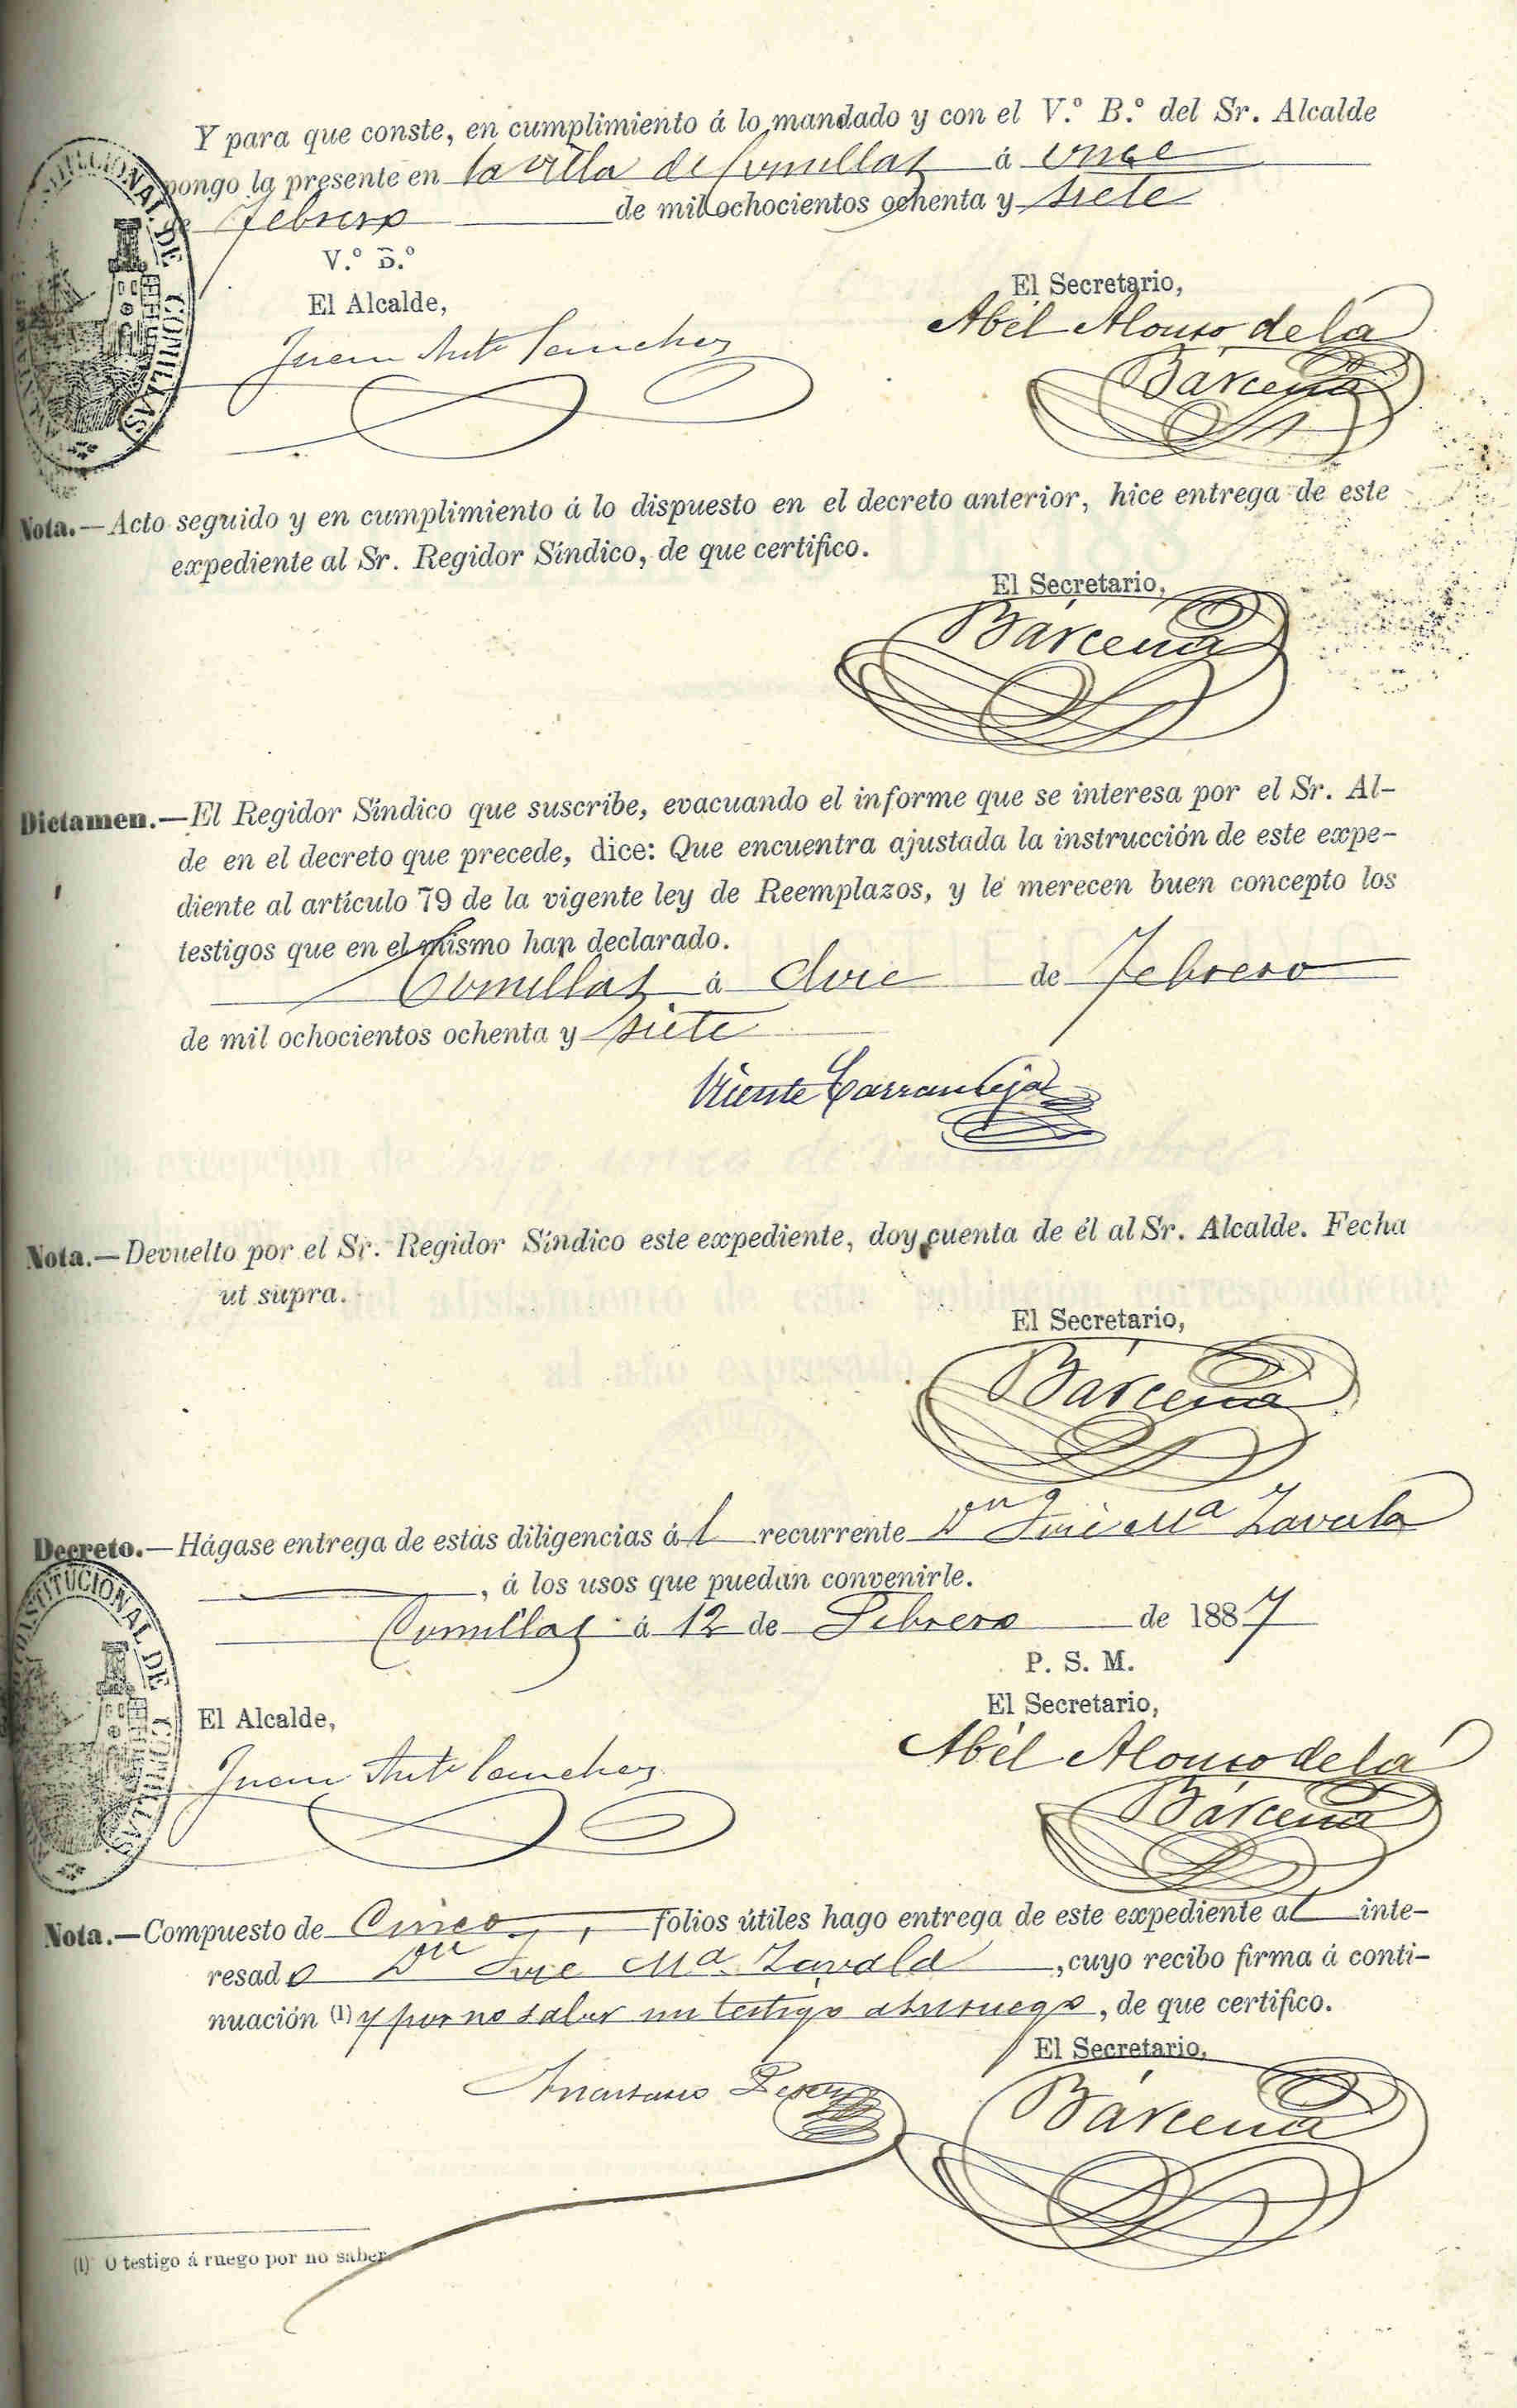 Y para que conste, en cumplimiento á lo mandado y con el V.º B.º del Sr. Alcalde
pongo la presente en la villa de Comillas á once
de Febrero de mil ochocientos ochenta y siete
V.º B.º
El Alcalde,
El Secretario,
Juan Ant.º Sanchez
Abél Alonso de la
Bárcena
CONSTITUCIONAL DE COMILLAS
Nota.—Acto seguido y en cumplimiento á lo dispuesto en el decreto anterior, hice entrega de este
expediente al Sr. Regidor Síndico, de que certifico.
El Secretario,
Bárcena
Dictamen.—El Regidor Síndico que suscribe, evacuando el informe que se interesa por el Sr. Al-
de en el decreto que precede, dice: Que encuentra ajustada la instrucción de este expe-
diente al artículo 79 de la vigente ley de Reemplazos, y le merecen buen concepto los
testigos que en el mismo han declarado.
Comillas á doce de Febrero
de mil ochocientos ochenta y siete
Vicente Carranceja
Nota.—Devuelto por el Sr. Regidor Síndico este expediente, doy cuenta de él al Sr. Alcalde. Fecha
ut supra.
El Secretario,
Bárcena
Decreto.—Hágase entrega de estas diligencias á l recurrente Dn José Mª Zavala
, á los usos que puedan convenirle.
Comillas á 12 de Febrero de 1887
P. S. M.
El Alcalde,
El Secretario,
Juan Ant.º Sanchez
Abél Alonso de la
Bárcena
CONSTITUCIONAL DE COMILLAS
Nota.—Compuesto de Cinco folios útiles hago entrega de este expediente al inte-
resado Dn José Mª Zavala, cuyo recibo firma á conti-
nuación (1) y por no saber un testigo a su ruego, de que certifico.
El Secretario,
Bárcena
(1) O testigo á ruego por no saber.